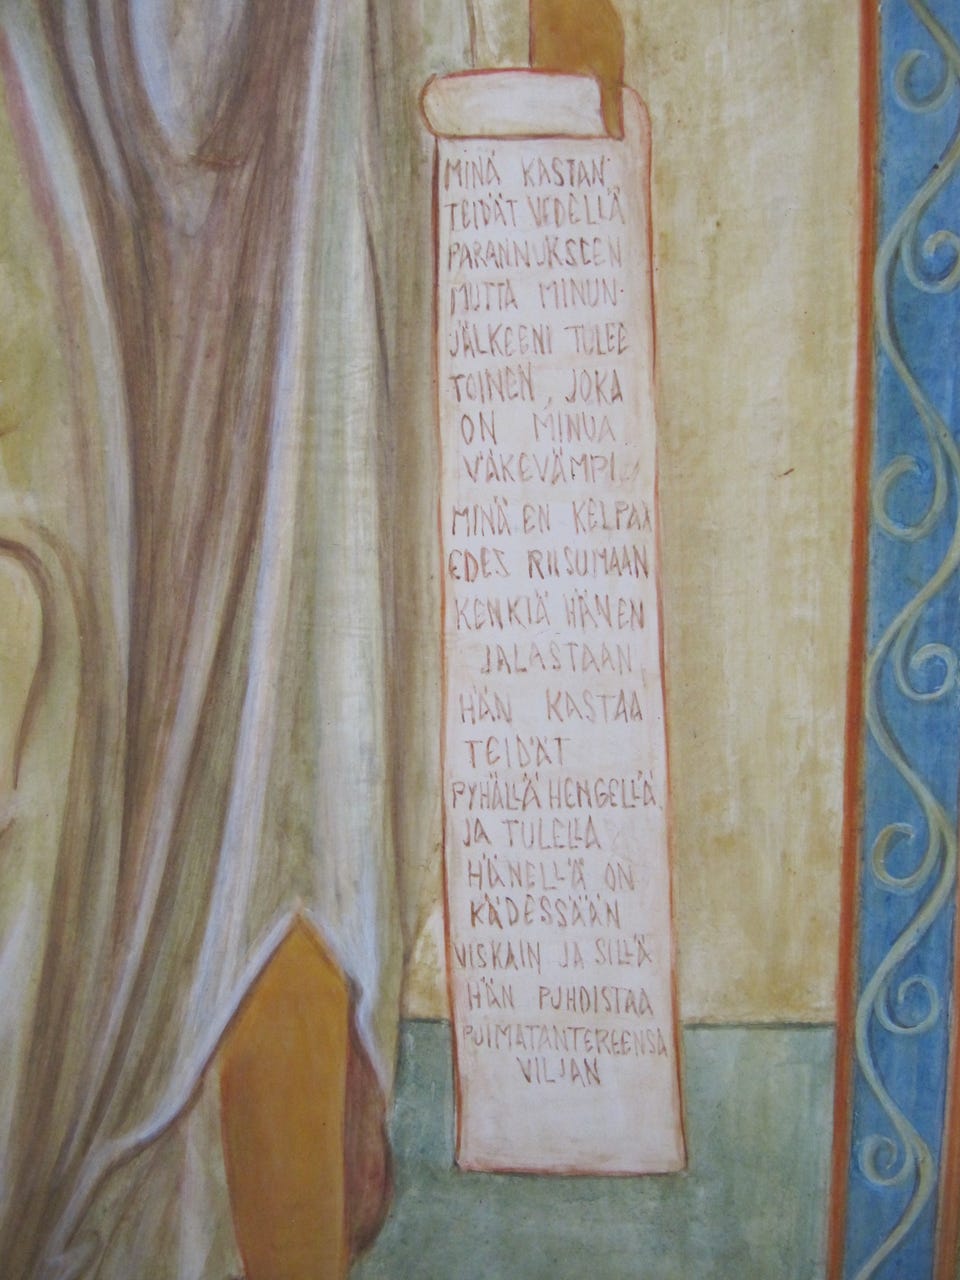 MINÄ KASTAN
TEIDÄT VEDELLÄ
PARANNUKSEEN
MUTTA MINUN
JÄLKEENI TULEE
TOINEN, JOKA
ON MINUA
VÄKEVÄMPI.
MINÄ EN KELPAA
EDES RIISUMAAN
KENKIÄ HÄNEN
JALASTAAN
HÄN KASTAA
TEIDÄT
PYHÄLLÄ HENGELLÄ
JA TULELLA
HÄNELLÄ ON
KÄDESSÄÄN
VISKAIN JA SILLÄ
HÄN PUHDISTAA
PUIMATANTEREENSA
VILJAN